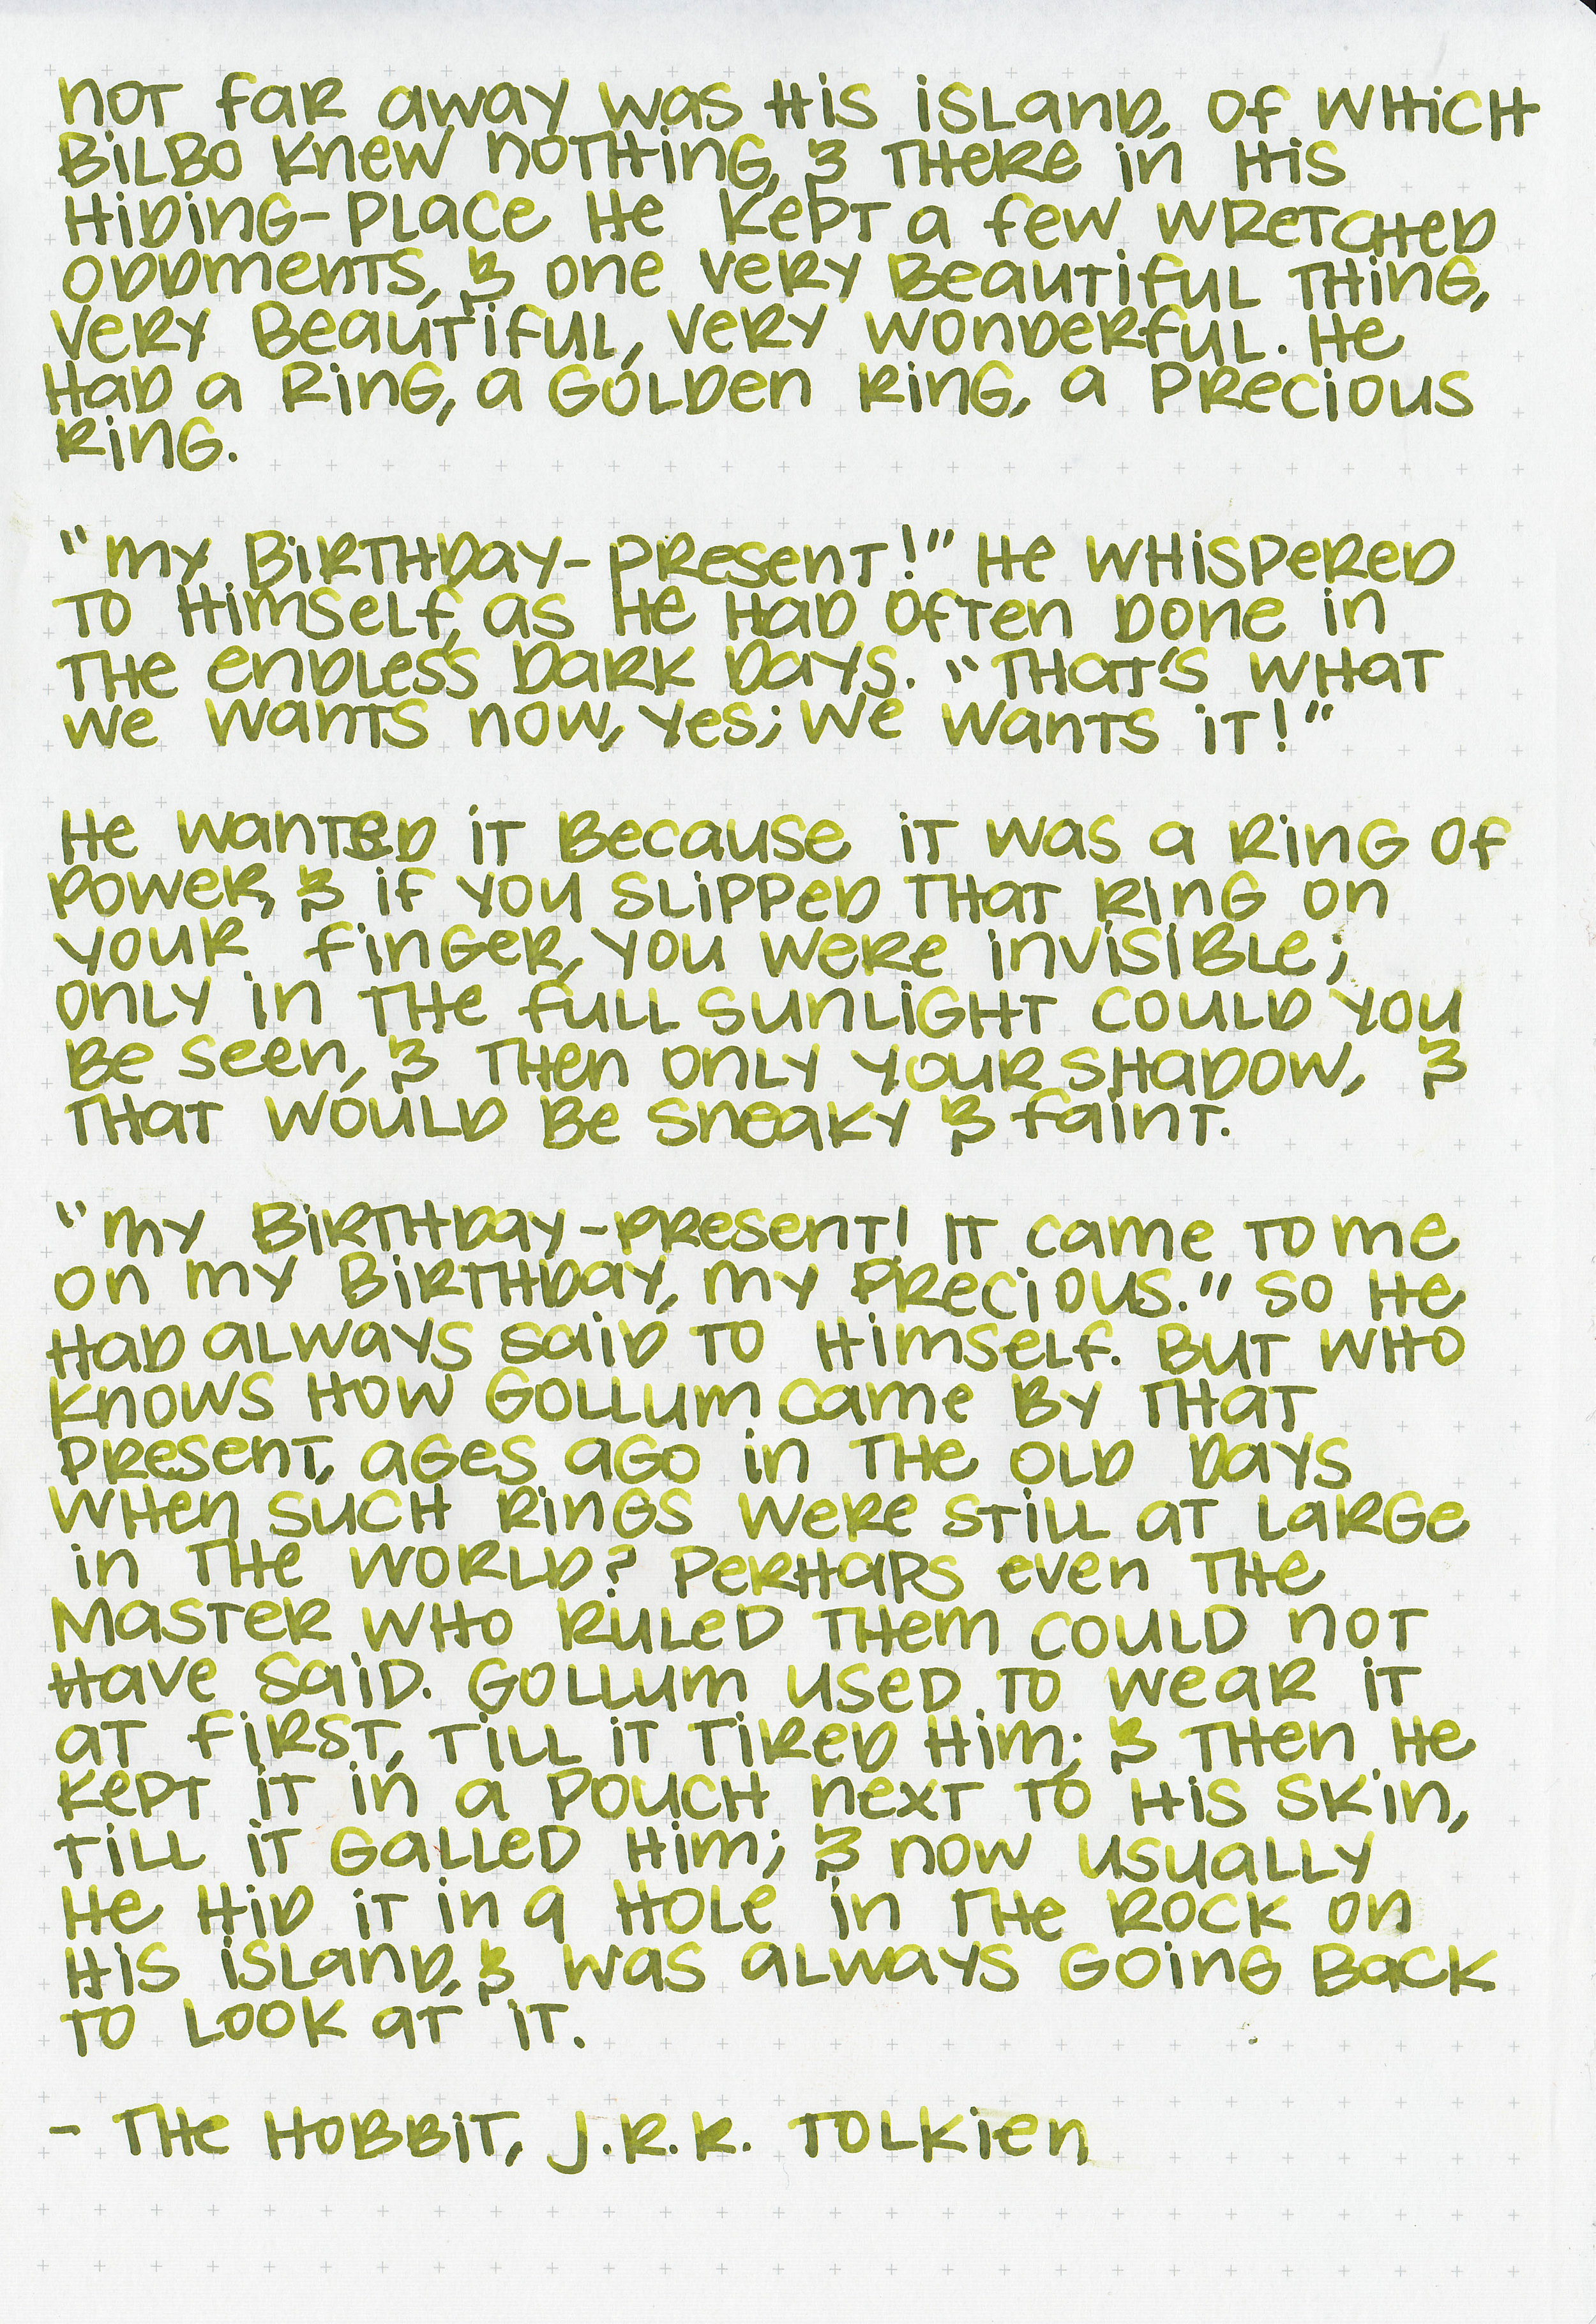 Not far away was his island, of which
Bilbo knew nothing, & there in his
hiding-place he kept a few wretched
oddments, & one very beautiful thing,
very beautiful, very wonderful. He
had a ring, a golden ring, a precious
ring.
"My birthday-present!" he whispered
to himself, as he had often done in
the endless dark days. "That's what
we wants now, yes; we wants it!"
He wanted it because it was a ring of
power, & if you slipped that ring on
your finger, you were invisible;
only in the full sunlight could you
be seen, & then only your shadow, &
that would be sneaky & faint.
"My birthday-present! It came to me
on my birthday, my precious." So he
had always said to himself. But who
knows how Gollum came by that
present, ages ago in the old days
when such rings were still at large
in the world? Perhaps even the
Master who ruled them could not
have said. Gollum used to wear it
at first, till it tired him; & then he
kept it in a pouch next to his skin,
till it galled him; & now usually
he hid it in a hole in the rock on
his island, & was always going back
to look at it.
- The Hobbit, J.R.R. Tolkien